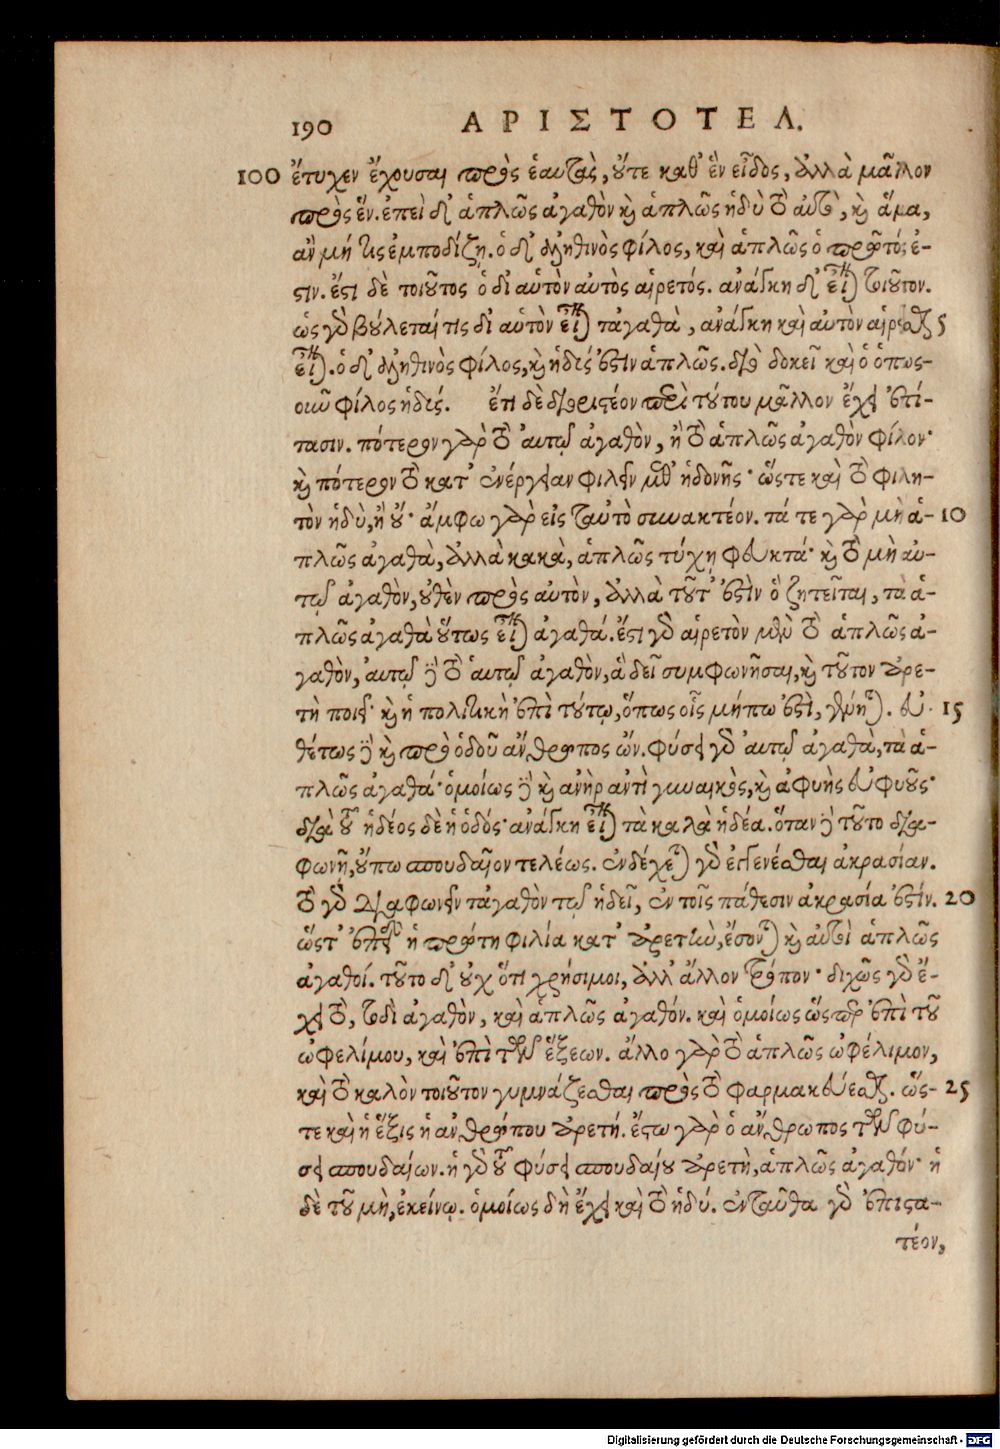 190 ΑΡΙΣΤΟΤΕΛ.
100 ἔτυχεν ἔχουσαι πρὸς ἑαυτὰς, οὔτε καθ' ἓν εἶδος, ἀλλὰ μᾶλλον
πρὸς ἕν. ἐπεὶ δ' ἁπλῶς ἀγαθὸν καὶ ἁπλῶς ἡδὺ τὸ αὐτὸ, καὶ ἅμα,
ἂν μή τις ἐμποδίζῃ. ὁ δ' ἀληθινὸς φίλος, καὶ ἁπλῶς ὁ πρῶτός ἐ-
στιν. ἔστι δὲ τοιοῦτος ὁ δι' αὑτὸν αὐτὸς αἱρετός. ἀνάγκη δ' εἶναι τοιοῦτον.
ὡς γὰρ βούλεταί τις δι' αὑτὸν εἶναι τἀγαθὰ, ἀνάγκη καὶ αὐτὸν αἱρεῖσθαι 5
εἶναι. ὁ δ' ἀληθινὸς φίλος, καὶ ἡδύς ἐστιν ἁπλῶς. διὸ δοκεῖ καὶ ὁ ὁπωσ-
οιοῦν φίλος ἡδύς. ἔτι δὲ διοριστέον περὶ τούτου μᾶλλον ἔχει ἐπί-
τασιν. πότερον γὰρ τὸ αὑτῷ ἀγαθὸν, ἢ τὸ ἁπλῶς ἀγαθὸν φίλον·
καὶ πότερον τὸ κατ' ἐνέργειαν φιλεῖν μεθ' ἡδονῆς· ὥστε καὶ τὸ φιλη-
τὸν ἡδὺ, ἢ οὔ· ἄμφω γὰρ εἰς ταὐτὸ συνακτέον. τά τε γὰρ μὴ ἁ- 10
πλῶς ἀγαθὰ, ἀλλὰ κακὰ, ἁπλῶς τύχῃ φευκτά· καὶ τὸ μὴ αὑ-
τῷ ἀγαθὸν, οὐθὲν πρὸς αὐτὸν, ἀλλὰ τοῦτ' ἐστὶν ὃ ζητεῖται, τὰ ἁ-
πλῶς ἀγαθὰ οὕτως εἶναι ἀγαθά. ἔστι γὰρ αἱρετὸν μὲν τὸ ἁπλῶς ἀ-
γαθὸν, αὑτῷ δὲ τὸ ἁυτῷ ἀγαθὸν, ἃ δεῖ συμφωνῆσαι, καὶ τοῦτον ἀρε-
τὴ ποιεῖ· καὶ ἡ πολιτικὴ ἐπὶ τούτῳ, ὅπως οἷς μήπω ἐστὶ, γένηται. εὐ- 15
θέτως δὲ καὶ πρὸ ὁδοῦ ἄνθρωπος ὤν. φύσει γὰρ αὐτῷ ἀγαθὰ, τὰ ἁ-
πλῶς ἀγαθά· ὁμοίως δὲ καὶ ἀνὴρ ἀντὶ γυναικὸς, καὶ ἀφυὴς εὐφυοῦς·
διὰ τοῦ ἡδέος δὲ ἡ ὁδός· ἀνάγκη εἶναι τὰ καλὰ ἡδέα. ὅταν δὲ τοῦτο δια-
φωνῇ, οὔπω σπουδαῖον τελέως. ἐνδέχεται γὰρ ἐγγενέσθαι ἀκρασίαν.
τὸ γὰρ διαφωνεῖν τἀγαθὸν τῷ ἡδεῖ, ἐν τοῖς πάθεσιν ἀκρασία ἐστίν. 20
ὥστ' ἐπεὶ ἡ πρώτη φιλία κατ' ἀρετὴν, ἔσονται καὶ αὐτοὶ ἁπλῶς
ἀγαθοί. τοῦτο δ' οὐχ ὅτι χρήσιμοι, ἀλλ' ἄλλον τρόπον· διχῶς γὰρ ἔ-
χει τὸ, τῳδὶ ἀγαθὸν, καὶ ἁπλῶς ἀγαθόν. καὶ ὁμοίως ὥσπερ ἐπὶ τοῦ
ὠφελίμου, καὶ ἐπὶ τῶν ἕξεων. ἄλλο γὰρ τὸ ἁπλῶς ὠφέλιμον,
καὶ τὸ καλὸν τοιοῦτον γυμνάζεσθαι πρὸς τὸ φαρμακεύεσθαι. ὥσ- 25
τε καὶ ἡ ἕξις ἡ ἀνθρώπου ἀρετή. ἔστω γὰρ ὁ ἄνθρωπος τῶν φύ-
σει σπουδαίων. ἡ γὰρ τοῦ φύσει σπουδαίου ἀρετὴ, ἁπλῶς ἀγαθόν· ἡ
δὲ τοῦ μὴ, ἐκείνῳ. ὁμοίως δὴ ἔχει καὶ τὸ ἡδύ. ἐνταῦθα γὰρ ἐπιστα-
τέον,
Digitalisierung gefördert durch die Deutsche Forschungsgemeinschaft - DFG